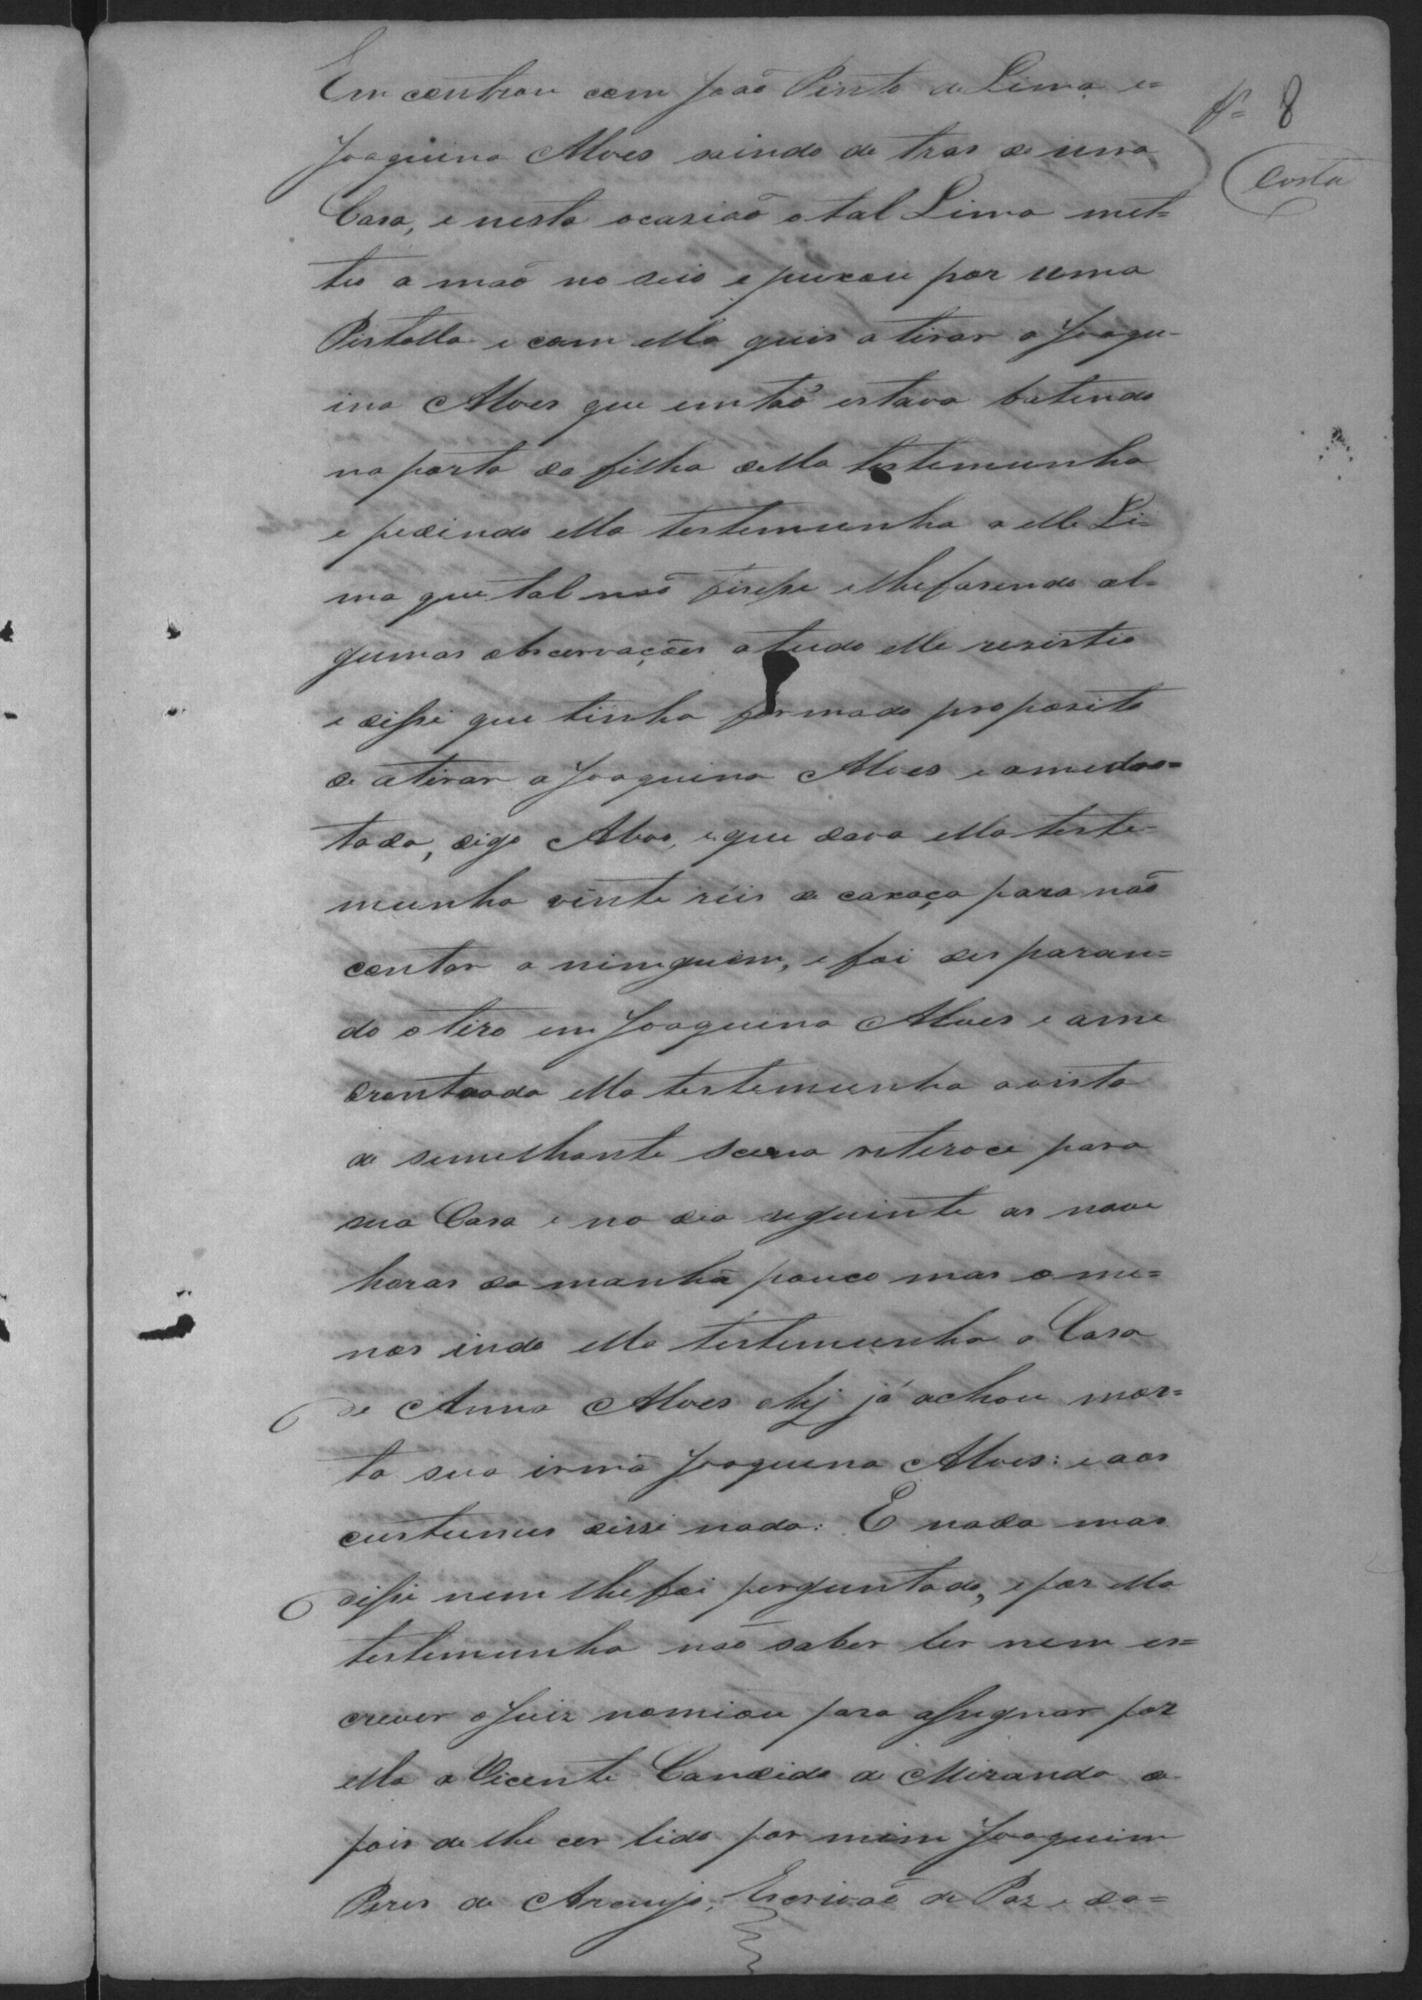 Emcontrou com João Pinto de Lima e=
Joaquina Alves saindo de tras de uma
Casa, e nesta ocazião o tal Lima met=
teo a mão no seio e puxou por uma
Pistolla e com ella quis atirar a Joaqu-
ina Alves que emtão estava batendo
na porta da filha della testemunha
e pedindo ella testemunha a elle Li=
ma que tal não fizesse e lhe fasendo al=
gumas observações a tudo elle resistio
e disse que tinha formado proposito
de atirar a Joaquina Alves e amedon=
tada, digo Alves, e que dava ella teste-
munha vinte réis de caxaça para não
contar a nimguem, e foi disparan=
do o tiro em Joaquina Alves e ame
drontada ella testemunha a vista
de semelhante scena retirouce para
sua Casa e no dia seguinte as nove
horas da manhã pouco mas o me=
nos indo ella testemunha a Casa
de Anna Alves já achou mor=
ta sua irmã Joaquina Alves: e aos
custumes disse nada: E nada mas
disse nem lhe foi perguntado, e por ella
testemunha não saber ler nem es=
crever o Juiz nomiou para assignar por
ella a Vicente Candido de Miranda de
pois de lhe cer lido por mim Joaquim
Peres de Araujo, Escrivão de Paz e da=
fl= 8
Costa